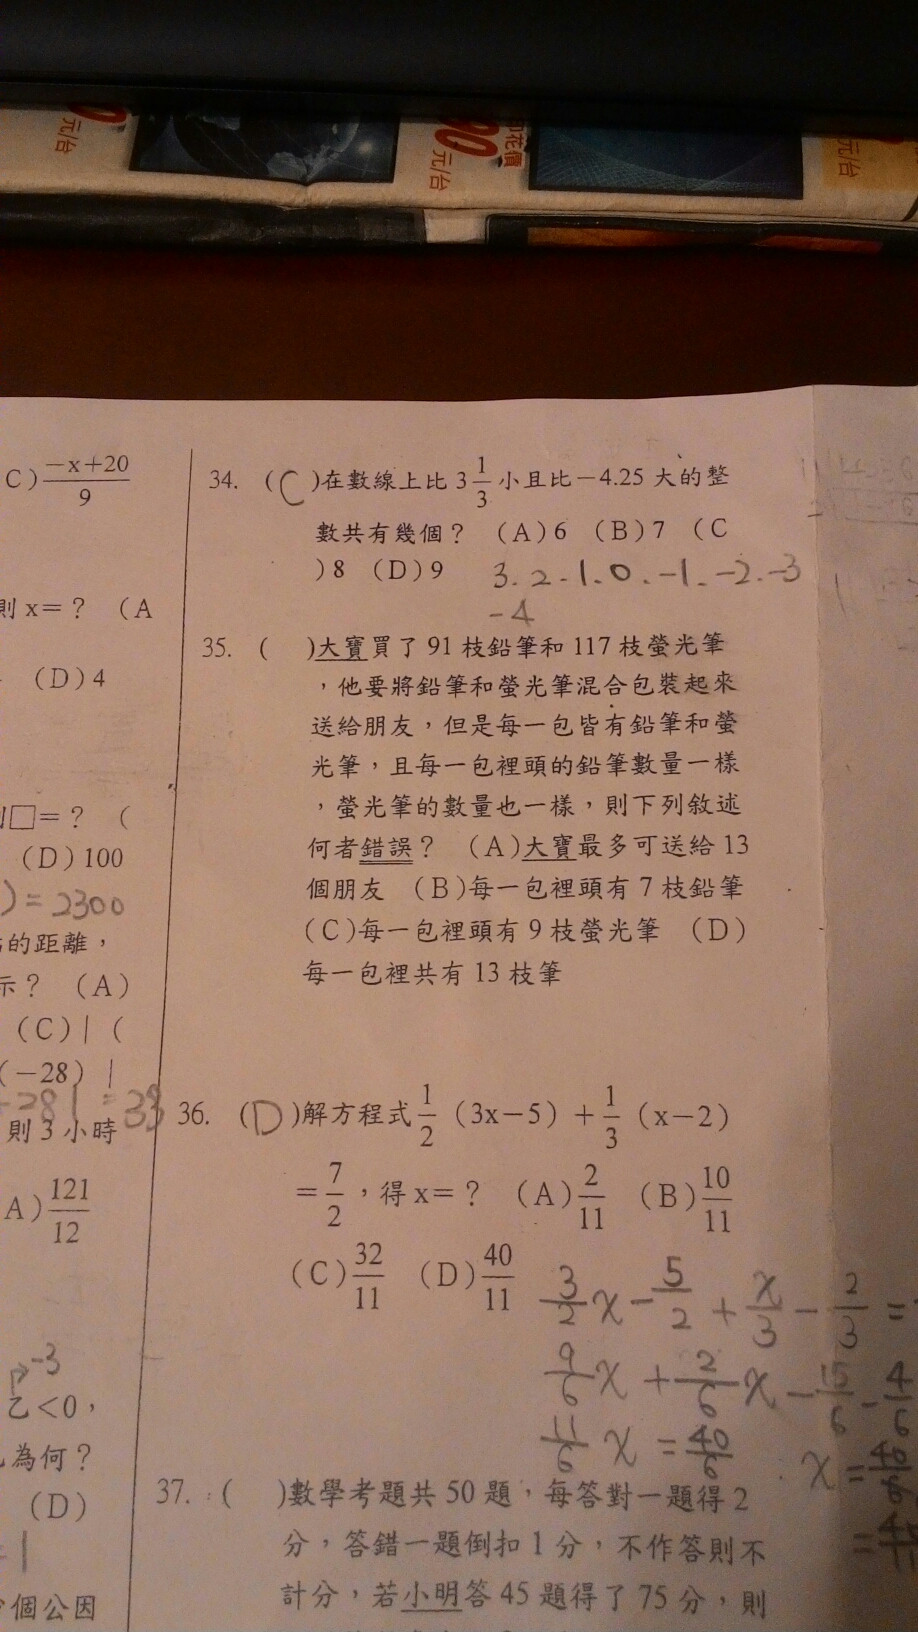 元/台
90
元/台
印花價
元/台
C)\frac{-x+20}{9}
則 x=? (A
(D)4
□=? (
(D)100
)=2300
的距離，
示? (A)
(C)| (
(-28) |
-28|=33
則3小時
A)\frac{121}{12}
-3
乙<0，
為何?
(D)
=1
個公因
34. (C)在數線上比 3\frac{1}{3} 小且比-4.25 大的整
數共有幾個? (A)6 (B)7 (C
)8 (D)9
3.2.1.0.-1.-2.-3
-4
35. ( )大寶買了 91 枝鉛筆和 117 枝螢光筆
，他要將鉛筆和螢光筆混合包裝起來
送給朋友，但是每一包皆有鉛筆和螢
光筆，且每一包裡頭的鉛筆數量一樣
，螢光筆的數量也一樣，則下列敘述
何者錯誤? (A)大寶最多可送給 13
個朋友 (B)每一包裡頭有 7 枝鉛筆
(C)每一包裡頭有 9 枝螢光筆 (D)
每一包裡共有 13 枝筆
36. (D)解方程式\frac{1}{2} (3x-5) +\frac{1}{3} (x-2)
=\frac{7}{2}，得 x=? (A)\frac{2}{11} (B)\frac{10}{11}
(C)\frac{32}{11} (D)\frac{40}{11}
\frac{3}{2}x-\frac{5}{2}+\frac{x}{3}-\frac{2}{3}=
\frac{9}{6}x+\frac{2}{6}x-\frac{15}{6}-\frac{4}{6}
\frac{11}{6}x=\frac{40}{6}
x=\frac{40}{6}
37. ( )數學考題共 50 題，每答對一題得 2
分，答錯一題倒扣 1 分，不作答則不
計分，若小明答 45 題得了 75 分，則